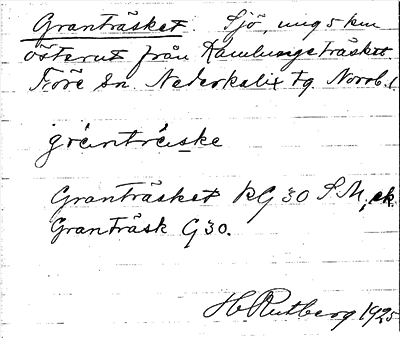 Granträsket. Sjö, ung 5 km
österut från Kamlungeträsket.
Töre Sn. Nederkalix tg. Norrb. l.
grànträ̀ske
Granträsket RG 30 S M; ek.
Granträsk G 30.
H Rutberg 1925